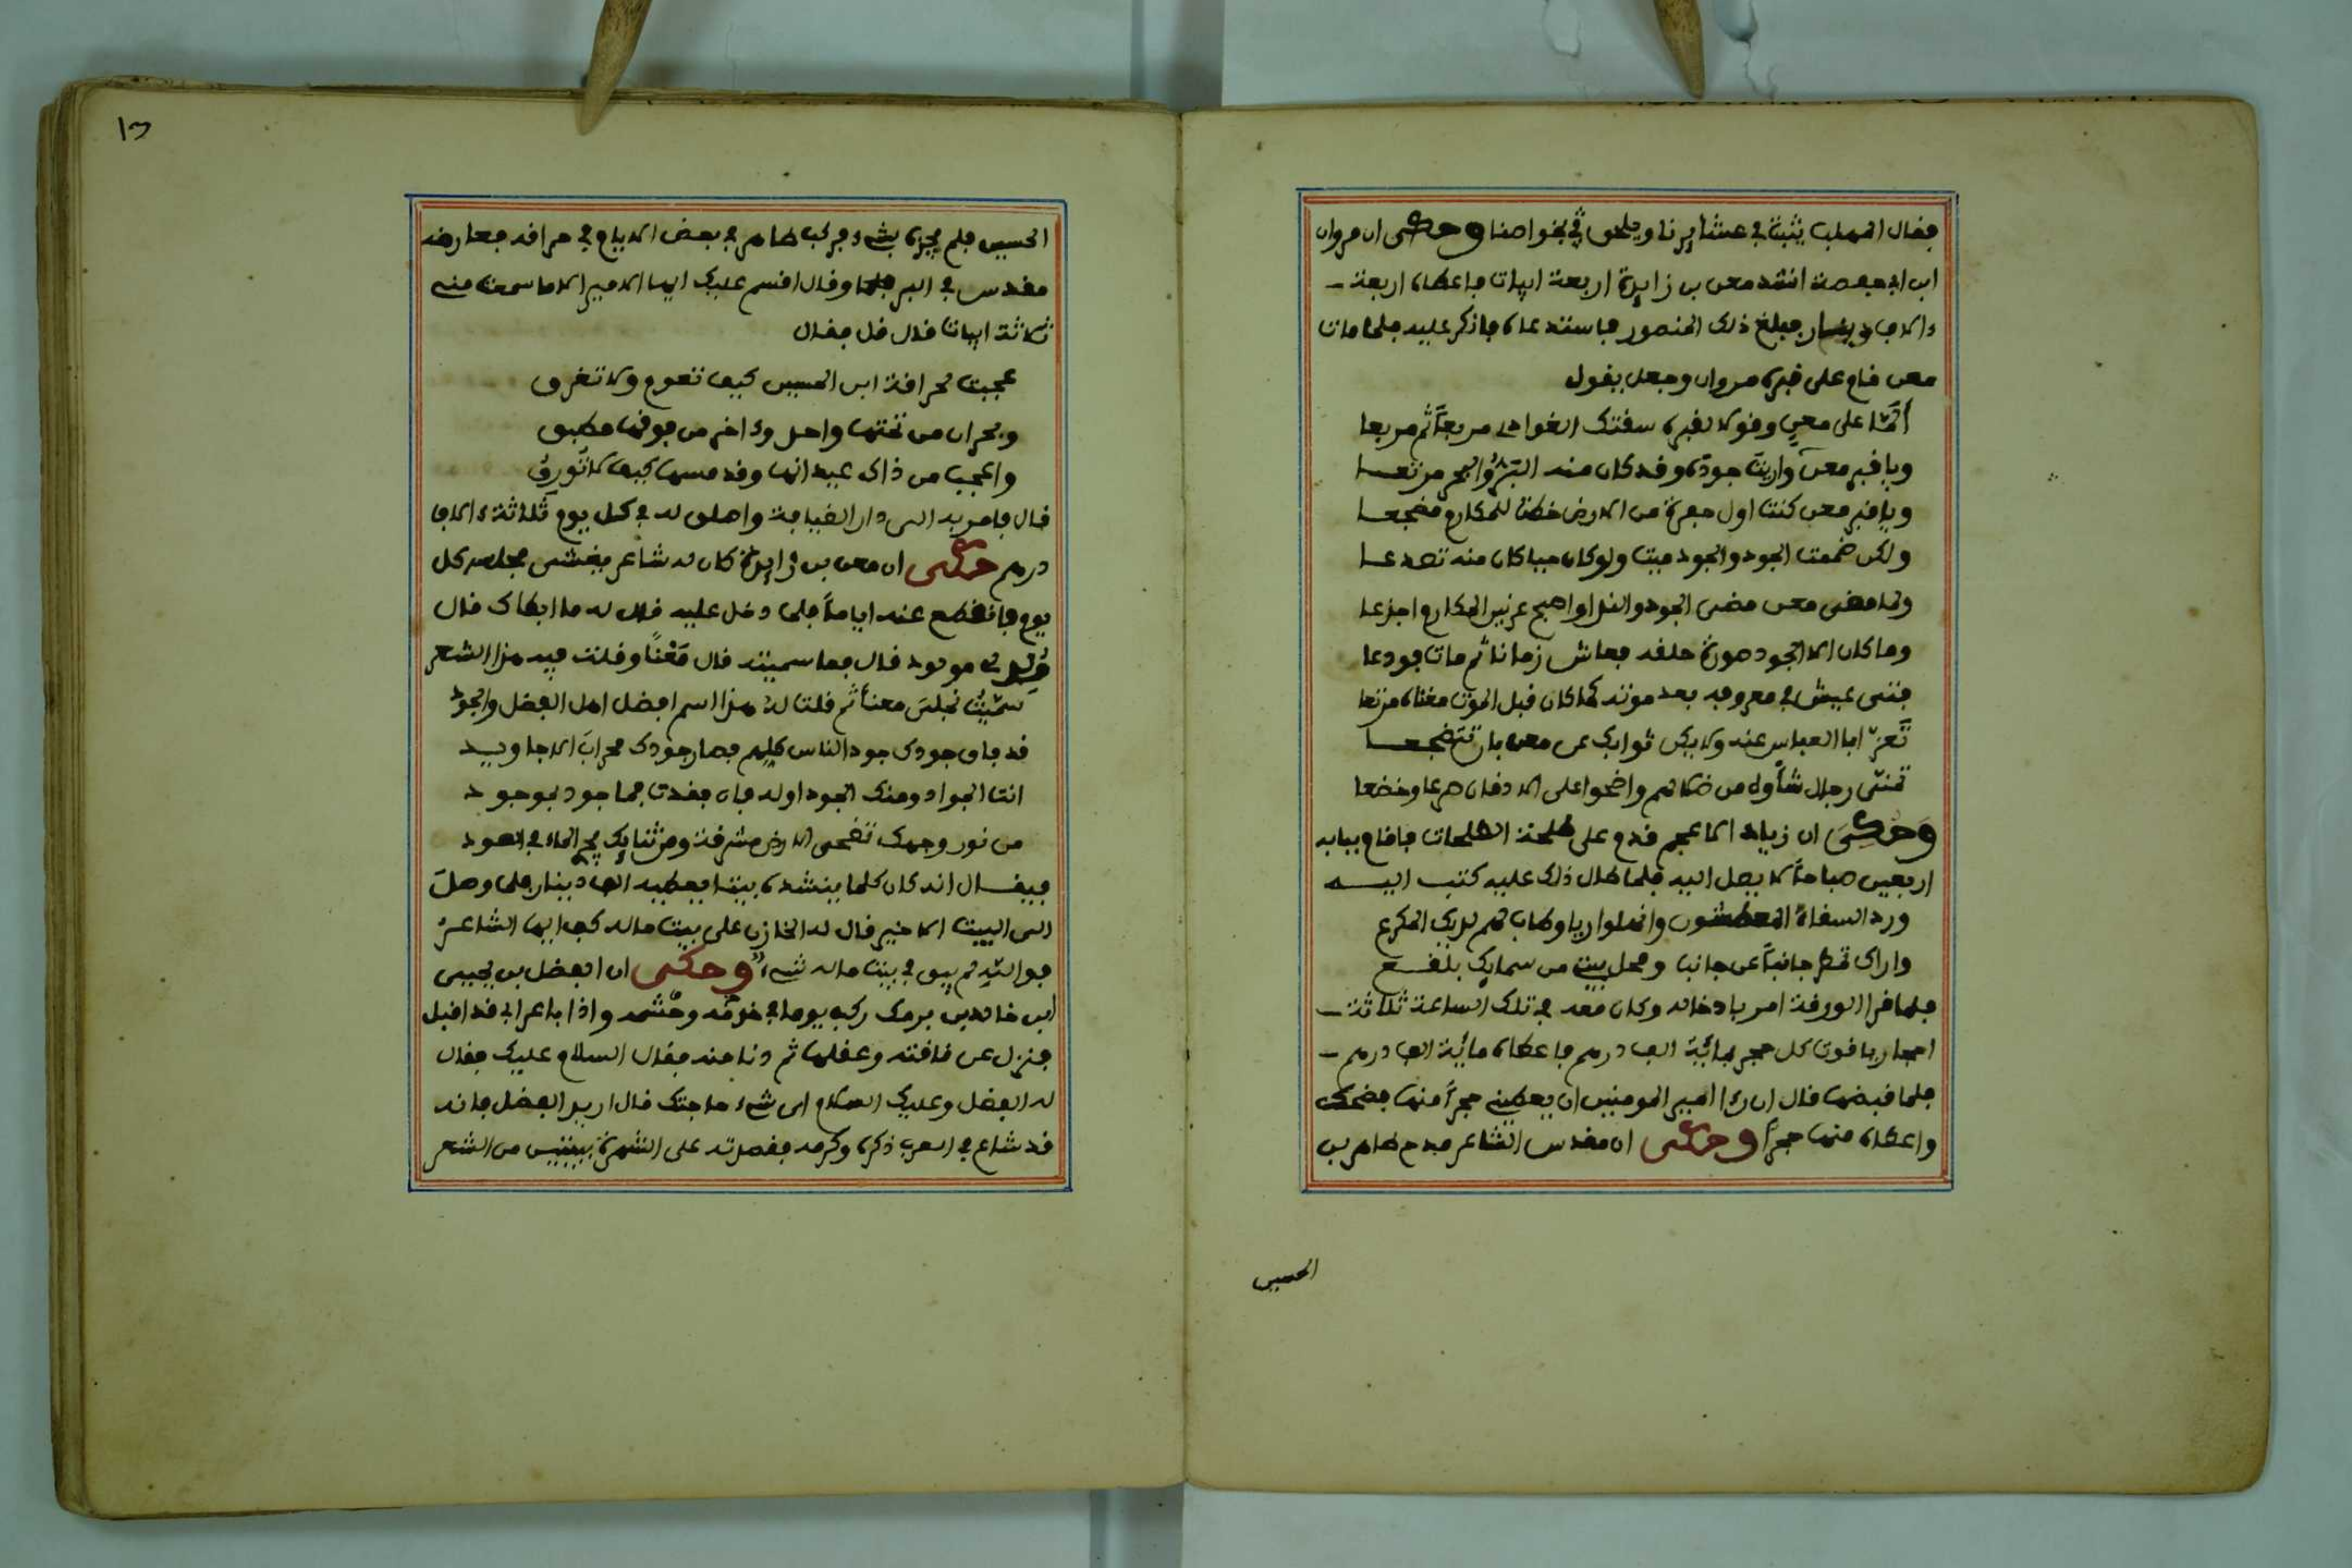 فقال المهلب يثبت في عشايرنا ويلحق في بخواصنا وحكى ان مروان
ابن ابي حفصة انشد معن بن زايدة اربعة ابيات فاعطاه اربعة
ءالاف دينار فبلغ ذلك المنصور فاستدعاه فانكر عليه فلما مات
معن قام على قبره مروان وجعل يقول
ألمّا على معنٍ وقولا لقبره سقتك الغوادي مربعاً ثم مربعا
ويا قبر معن واريت جوده وقد كان منه البرُّ والبحر مترعا
ويا قبر معن كنت اول حفرة من الارض خطت للمكارم مضجعا
ولكن ضممت الجود والجود ميت ولو كان حيا كان منه تصدعا
ولما مضى معن مضى الجود والندا واصبح عرنين المكارم اجدعا
وما كان الا الجود صورة خلقه فعاش زمانا ثم مات فودعا
فتى عيش في معروفه بعد موته كما كان قبل الموت مغناه مرتعا
تَعزّ ابا العباس عنه ولا يكن ثوابك عن معن بان تتضجعا
تمنّى رجال شأوه من ضلالهم واضحوا على الاذقان صرعا وخضعا
وحكى ان زياد الاعجم قدم على طلحة الطلحات فاقام ببابه
اربعين صباحاً لا يصل اليه فلما طال ذلك عليه كتب اليه
ورد السقاة المعطشون وانهلوا ريا وطاب لهم لديك المكرع
واراك تمطر جانباً عن جانبا ومحل بيتي من سمايك بلقع
فلما قرا الورقة امر بادخاله وكان معه في تلك الساعة ثلاثة
احجار ياقوت كل حجر بمائية الف درهم فاعطاه مائية الف درهم
فلما قبضها قال ان رءا امير المومنين ان يعطيني حجراً منها فضحك
واعطاه منها حجراً وحكى ان مقدس الشاعر مدح طاهر بن
الحسين
١٣
الحسين فلم يجزه بشيء فركب طاهر في بعض الايام في حراقه فعارضه
مقدس في البر وقال اقسم عليك ايها الامير الا ما سمعت منى
ثلاثة ابيات قال قل فقال
عجبت لحراقة ابن الحسين كيف تعوم ولا تغرق
وبحران من تحتها واحد وءاخر من فوقها مطبق
واعجب من ذاك عيدانها وقد مسها كيف لا تُورقُ
قال فامر به الى دار الضيافة واطلق له في كل يوم ثلاثة ءالاف
درهم حكى ان معن بن زايدة كان له شاعر يغشى مجلسه كل
يوم فانقطع عنه اياماً فلما دخل عليه قال له ما ابطاك قال
وُلد لي مولود قال فما سميته قال مَعْناً وقلت فيه هذا الشعر
سمّيتُ نجلىَ معناً ثم قلت له هذا اسم افضل اهل الفضل والجود
قد فاق جودك جود الناس كلهم فصار جودك محراب الاجاويد
انت الجواد ومنك الجود اوله فان فقدت فما جود بموجود
من نور وجهك تضحى الارض مشرقة ومن ثنايك يجرى الماء في العود
فيقال انه كان كلما ينشده بيتا يعطيه الف دينار فلما وصل
الى البيت الاخير قال له الخازن على بيت ماله كف ايها الشاعرُ
فوالله لم يبق في بيت ماله شيء وحكى ان الفضل بن يحيى
ابن خالد بن برمك ركب يوما في خدَمه وحشَمه واذا باعرابي قد اقبل
فنزل عن ناقته وعقلها ثم دنا منه فقال السلام عليك فقال
له الفضل وعليك السلام اى شيء حاجتك قال اريد الفضل فانه
قد شاع في العرب ذكره وكرمه فقصدته على الشهرة ببيتين من الشعر